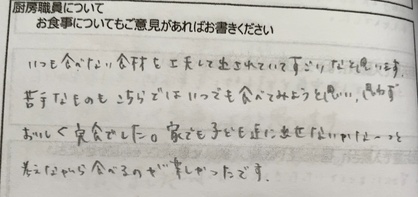 厨房職員について
お食事についてもご意見があればお書きください
いつも食べない食材も工夫して出されていてすごいなと思います。
苦手なものもこちらではいつでも食べてみようと思い、思わず
おいしく完食でした。家でも子ども達に出せないかな〜っと
考えながら食べるのが楽しかったです。